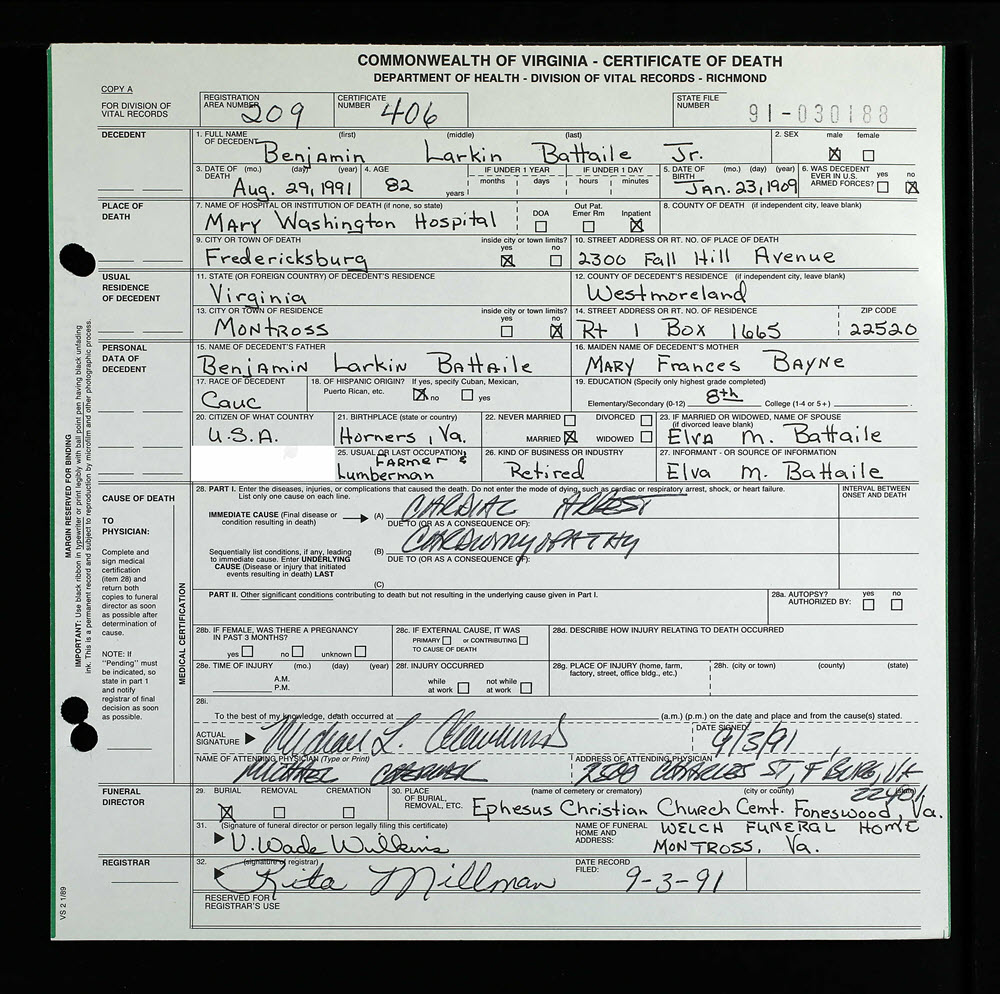 COMMONWEALTH OF VIRGINIA - CERTIFICATE OF DEATH
DEPARTMENT OF HEALTH - DIVISION OF VITAL RECORDS - RICHMOND
COPY A
FOR DIVISION OF VITAL RECORDS
REGISTRATION AREA NUMBER 209
CERTIFICATE NUMBER 406
STATE FILE NUMBER 91-030188
DECEDENT
1. FULL NAME OF DECEDENT (first) (middle) (last)
Benjamin Larkin Battaile Jr.
2. SEX male ☒ female ☐
3. DATE OF DEATH (mo.) (day) (year) Aug. 29, 1991
4. AGE 82 years
IF UNDER 1 YEAR months days
IF UNDER 1 DAY hours minutes
5. DATE OF BIRTH (mo.) (day) (year) Jan. 23, 1909
6. WAS DECEDENT EVER IN U.S. ARMED FORCES? yes ☐ no ☒
PLACE OF DEATH
7. NAME OF HOSPITAL OR INSTITUTION OF DEATH (if none, so state)
Mary Washington Hospital
DOA ☐ Out Pat. Emer Rm ☐ Inpatient ☒
8. COUNTY OF DEATH (if independent city, leave blank)
9. CITY OR TOWN OF DEATH inside city or town limits? yes ☒ no ☐
Fredericksburg
10. STREET ADDRESS OR RT. NO. OF PLACE OF DEATH
2300 Fall Hill Avenue
USUAL RESIDENCE OF DECEDENT
11. STATE (OR FOREIGN COUNTRY) OF DECEDENT'S RESIDENCE
Virginia
12. COUNTY OF DECEDENT'S RESIDENCE (if independent city, leave blank)
Westmoreland
13. CITY OR TOWN OF RESIDENCE inside city or town limits? yes ☐ no ☒
Montross
14. STREET ADDRESS OR RT. NO. OF RESIDENCE
Rt 1 Box 1665
ZIP CODE 22520
PERSONAL DATA OF DECEDENT
15. NAME OF DECEDENT'S FATHER
Benjamin Larkin Battaile
16. MAIDEN NAME OF DECEDENT'S MOTHER
Mary Frances Bayne
17. RACE OF DECEDENT
Cauc
18. OF HISPANIC ORIGIN? If yes, specify Cuban, Mexican, Puerto Rican, etc. ☒ no ☐ yes
19. EDUCATION (Specify only highest grade completed)
Elementary/Secondary (0-12) 8th College (1-4 or 5+)
20. CITIZEN OF WHAT COUNTRY
U.S.A.
21. BIRTHPLACE (state or country)
Horners, Va.
22. NEVER MARRIED ☐ DIVORCED ☐
MARRIED ☒ WIDOWED ☐
23. IF MARRIED OR WIDOWED, NAME OF SPOUSE (if divorced leave blank)
Elva M. Battaile
25. USUAL OR LAST OCCUPATION
Farmer & Lumberman
26. KIND OF BUSINESS OR INDUSTRY
Retired
27. INFORMANT - OR SOURCE OF INFORMATION
Elva M. Battaile
MARGIN RESERVED FOR BINDING
IMPORTANT: Use black ribbon in typewriter or print legibly with ball point pen having black unfading ink. This is a permanent record and subject to reproduction by microfilm and other photographic process.
CAUSE OF DEATH
TO PHYSICIAN:
Complete and sign medical certification (item 28) and return both copies to funeral director as soon as possible after determination of cause.
NOTE: If "Pending" must be indicated, so state in part 1 and notify registrar of final decision as soon as possible.
MEDICAL CERTIFICATION
28. PART I. Enter the diseases, injuries, or complications that caused the death. Do not enter the mode of dying, such as cardiac or respiratory arrest, shock, or heart failure.
List only one cause on each line.
INTERVAL BETWEEN ONSET AND DEATH
IMMEDIATE CAUSE (Final disease or condition resulting in death) (A) CARDIAC ARREST
DUE TO (OR AS A CONSEQUENCE OF):
Sequentially list conditions, if any, leading to immediate cause. Enter UNDERLYING CAUSE (Disease or injury that initiated events resulting in death) LAST
(B) CARDIOMYOPATHY
DUE TO (OR AS A CONSEQUENCE OF):
(C)
PART II. Other significant conditions contributing to death but not resulting in the underlying cause given in Part I.
28a. AUTOPSY? AUTHORIZED BY: yes ☐ no ☐
28b. IF FEMALE, WAS THERE A PREGNANCY IN PAST 3 MONTHS?
yes ☐ no ☐ unknown ☐
28c. IF EXTERNAL CAUSE, IT WAS PRIMARY ☐ or CONTRIBUTING ☐ TO CAUSE OF DEATH
28d. DESCRIBE HOW INJURY RELATING TO DEATH OCCURRED
28e. TIME OF INJURY (mo.) (day) (year)
A.M.
P.M.
28f. INJURY OCCURRED
while at work ☐ not while at work ☐
28g. PLACE OF INJURY (home, farm, factory, street, office bldg., etc.)
28h. (city or town) (county) (state)
28i.
To the best of my knowledge, death occurred at (a.m.) (p.m.) on the date and place and from the cause(s) stated.
ACTUAL SIGNATURE Michael L.
DATE SIGNED 9/3/91
NAME OF ATTENDING PHYSICIAN (Type or Print)
MICHAEL
ADDRESS OF ATTENDING PHYSICIAN
CHARLES ST, F'BURG, VA
22401
FUNERAL DIRECTOR
29. BURIAL ☒ REMOVAL ☐ CREMATION ☐
30. PLACE OF BURIAL, REMOVAL, ETC. (name of cemetery or crematory) (city or county) (state)
Ephesus Christian Church Cemt. Foneswood, Va.
31. (Signature of funeral director or person legally filing this certificate)
V. Wade Wilkins
NAME OF FUNERAL HOME AND ADDRESS:
WELCH FUNERAL HOME
MONTROSS, Va.
REGISTRAR
32. (signature of registrar)
Rita Millman
DATE RECORD FILED: 9-3-91
RESERVED FOR REGISTRAR'S USE
VS 2 1/89